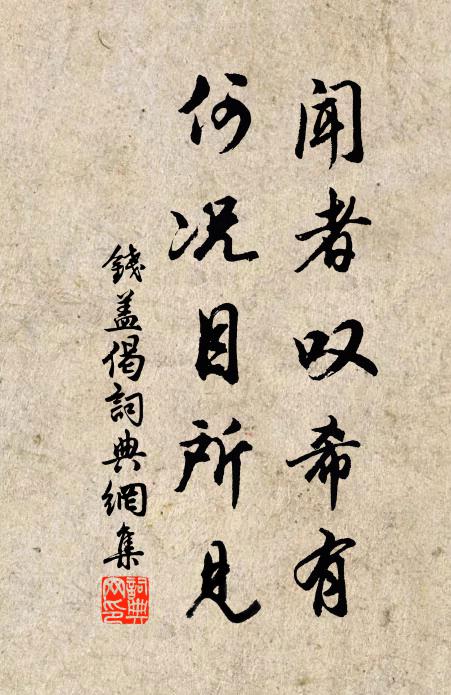 闻者叹希有
何况目所见
錢盖偈詞典網集
詞典網印